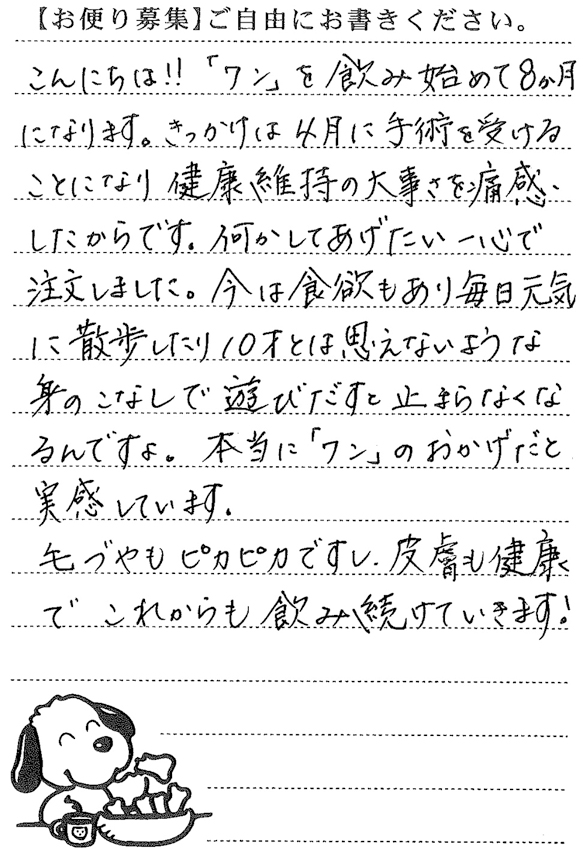 【お便り募集】ご自由にお書きください。
こんにちは!!「ワン」を飲み始めて8か月
になります。きっかけは4月に手術を受ける
ことになり健康維持の大事さを痛感
したからです。何かしてあげたい一心で
注文しました。今は食欲もあり毎日元気
に散歩したり10才とは思えないような
身のこなしで遊びだすと止まらなくな
るんですよ。本当に「ワン」のおかげだと
実感しています。
毛づやもピカピカですし、皮膚も健康
でこれからも飲み続けていきます!